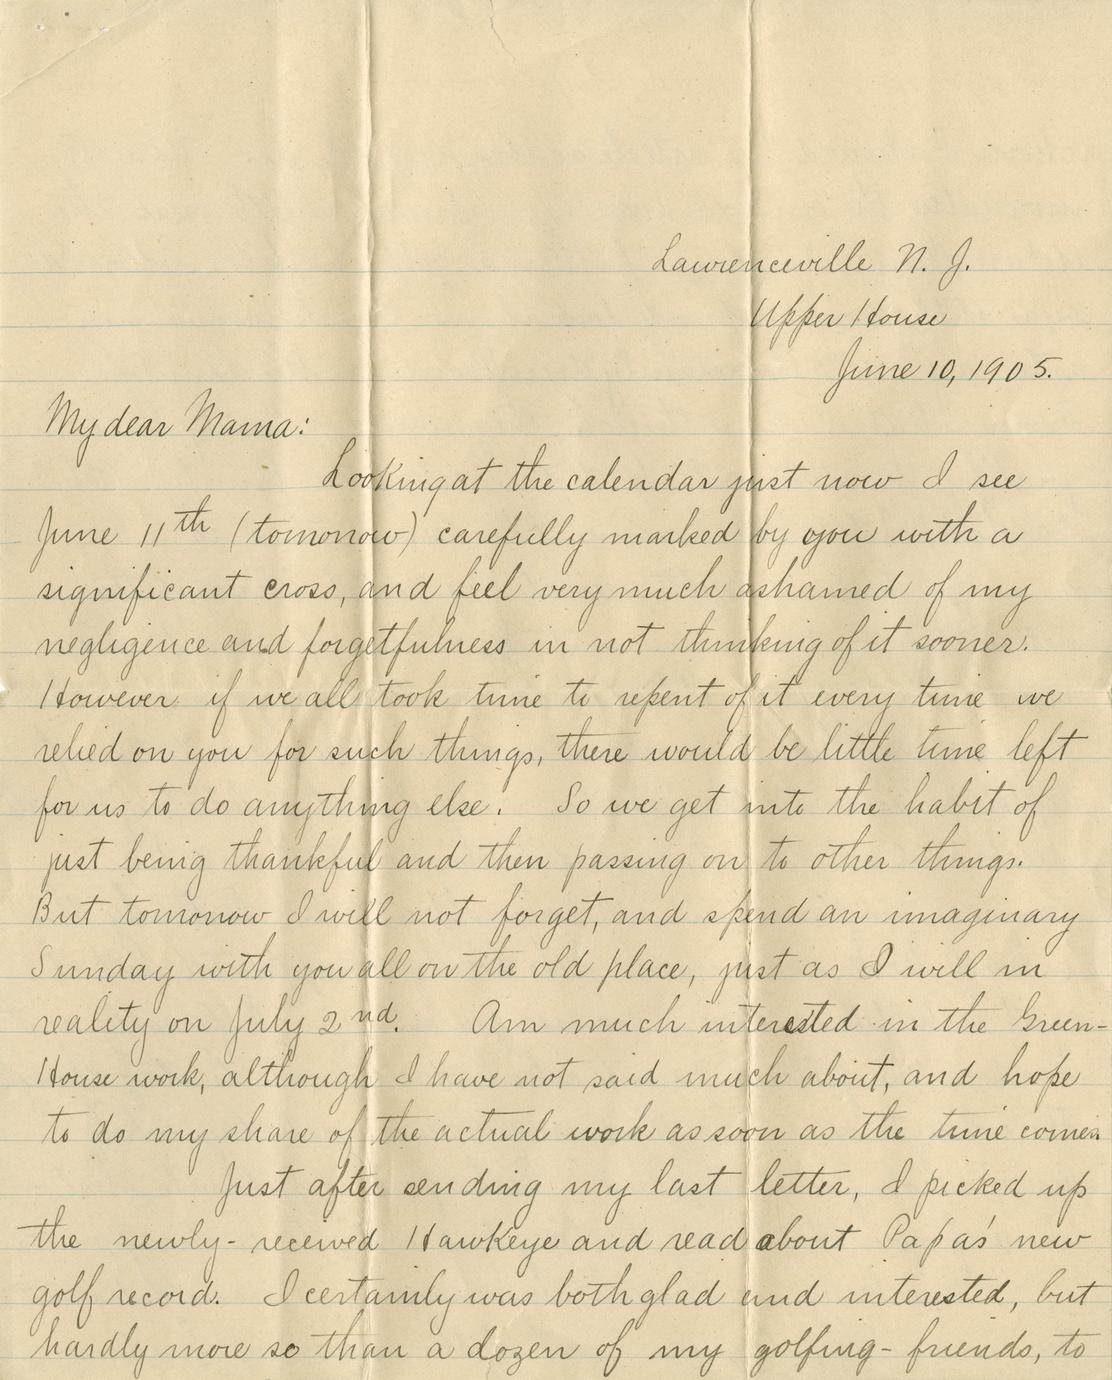 Lawrenceville N. J.
Upper House
June 10, 1905.
My dear Mama:
Looking at the calendar just now I see
June 11th (tomorrow) carefully marked by you with a
significant cross, and feel very much ashamed of my
negligence and forgetfulness in not thinking of it sooner.
However if we all took time to repent of it every time we
relied on you for such things, there would be little time left
for us to do anything else. So we get into the habit of
just being thankful and then passing on to other things.
But tomorrow I will not forget, and spend an imaginary
Sunday with you all on the old place, just as I will in
reality on July 2nd. Am much interested in the Green-
House work, although I have not said much about, and hope
to do my share of the actual work as soon as the time comes.
Just after sending my last letter, I picked up
the newly-received Hawkeye and read about Papa's new
golf record. I certainly was both glad and interested, but
hardly more so than a dozen of my golfing-friends, to